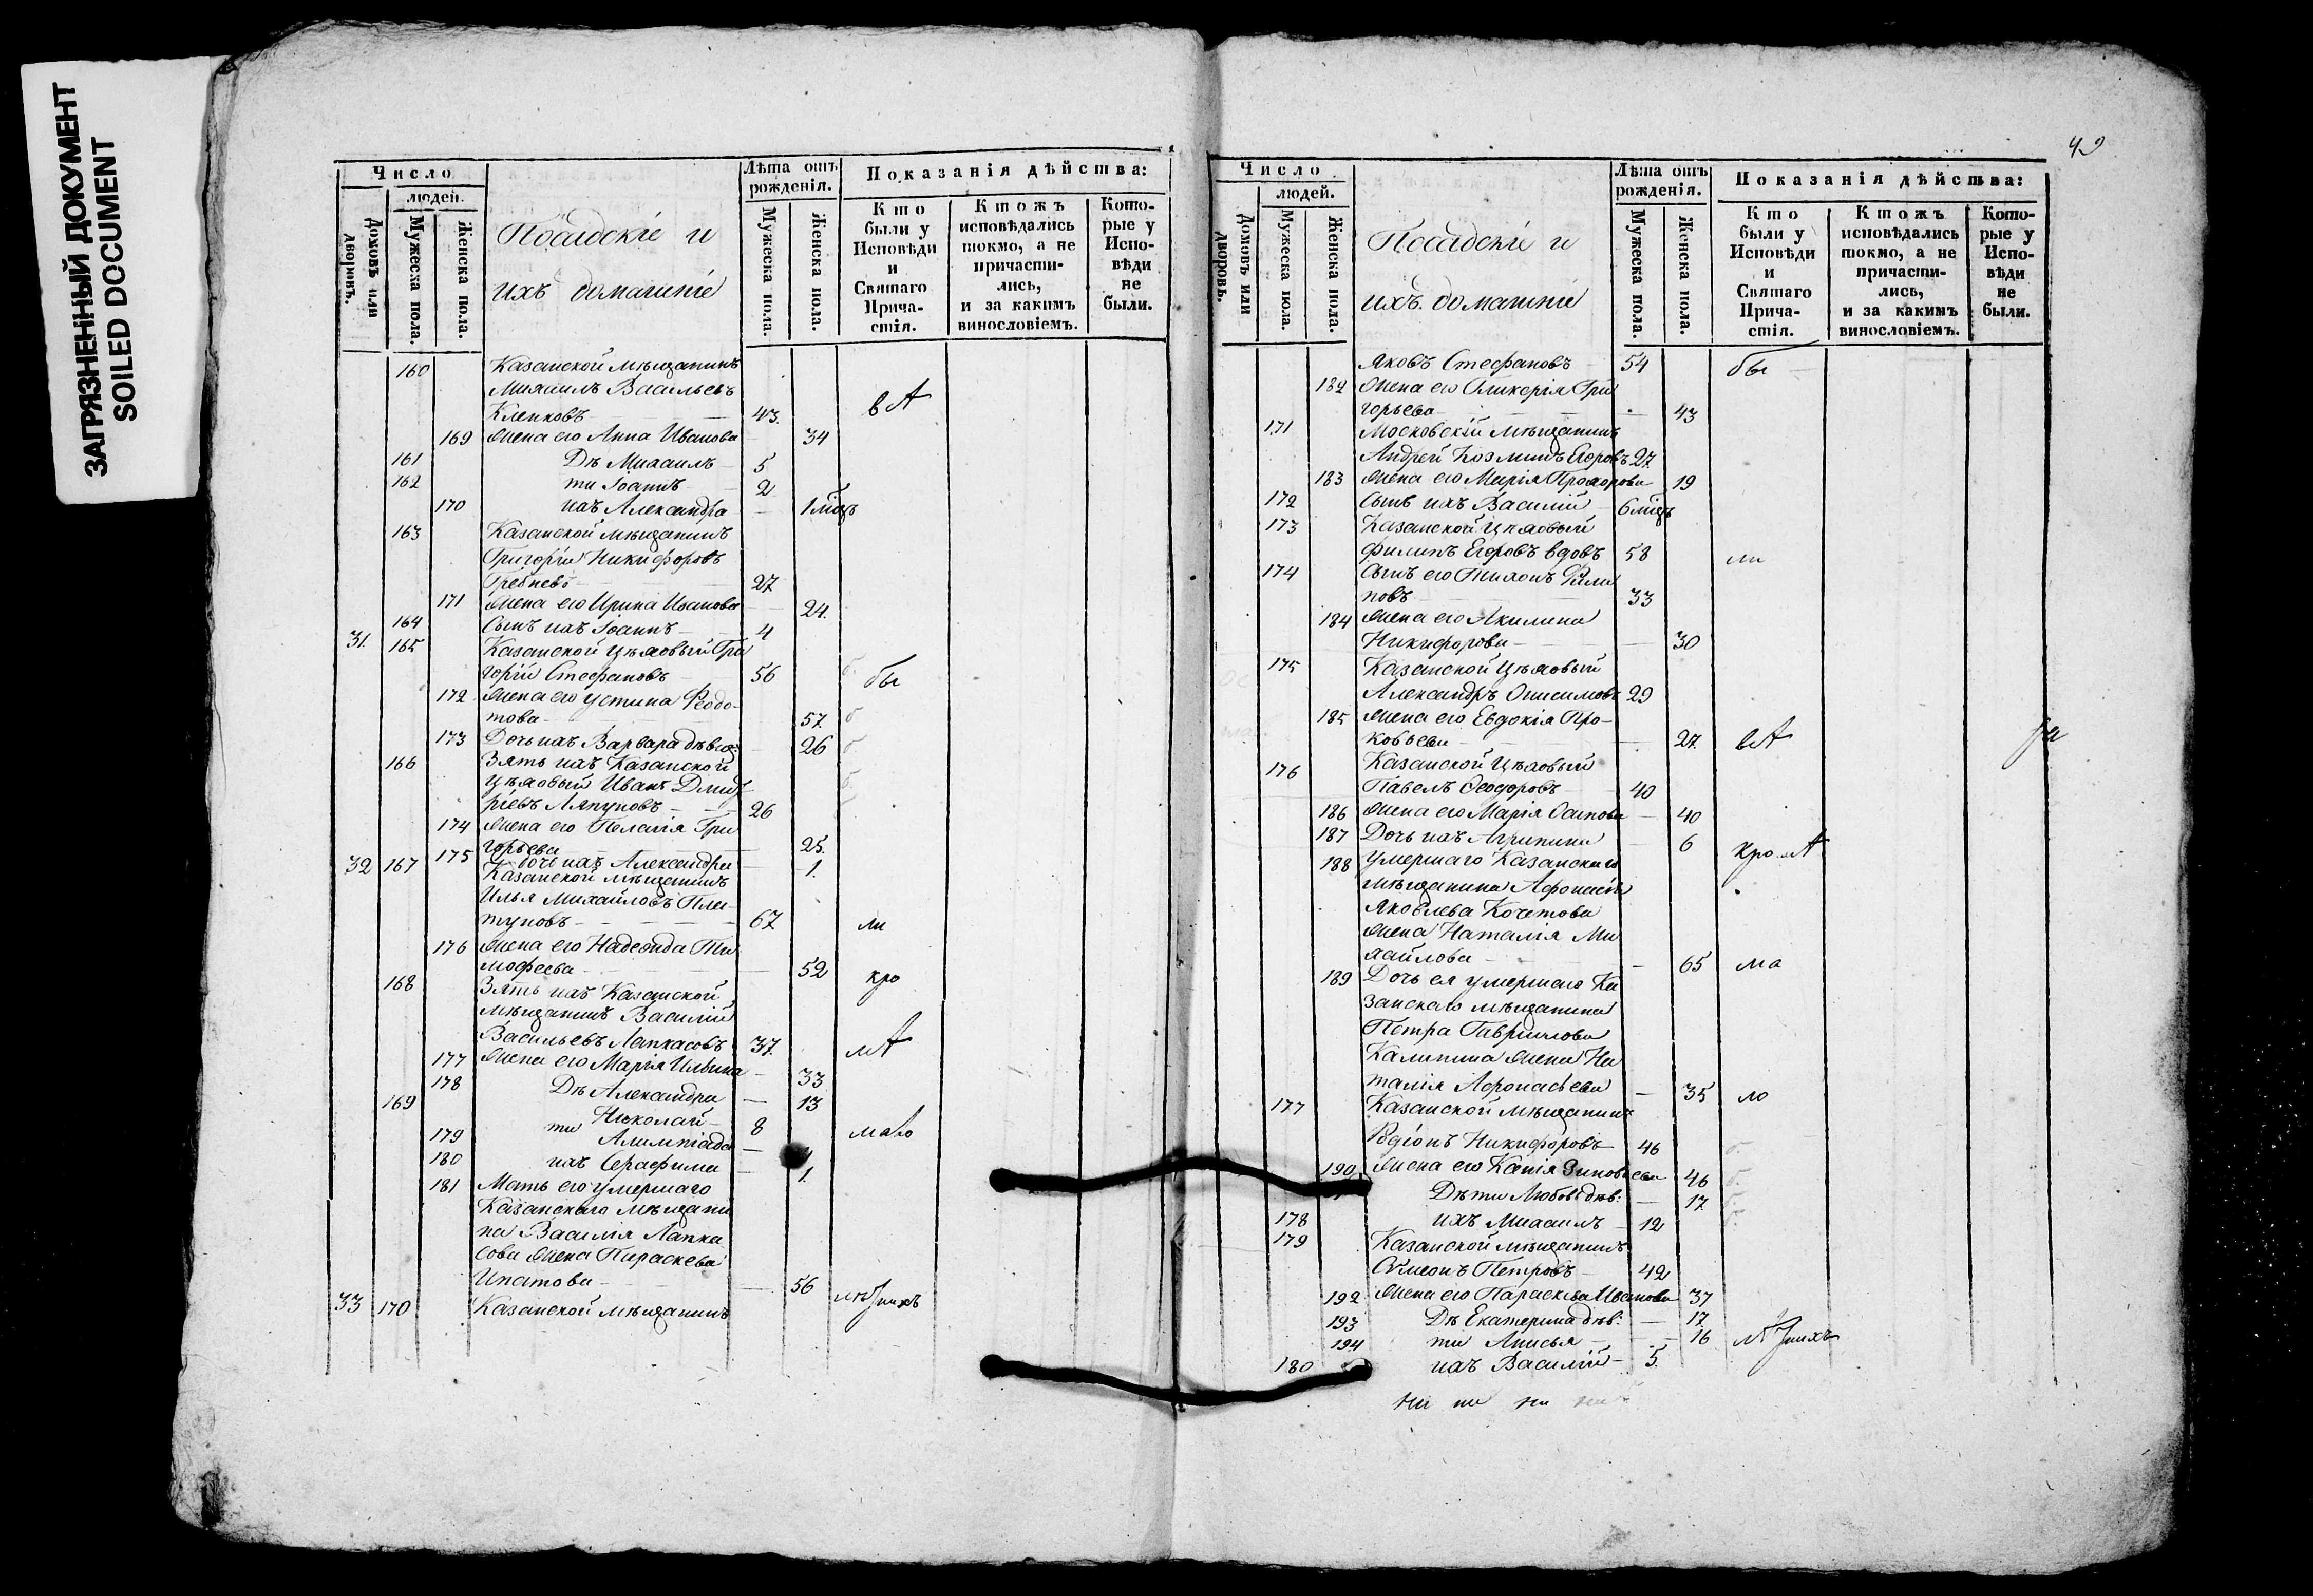 ЗАГРЯЗНЕННЫЙ ДОКУМЕНТ
SOILED DOCUMENT
Число
людей.
Домовъ или дворовъ.
Мужеска пола.
Женска пола.
Посадскіе и
ихъ домашніе
Лѣта отъ рожденія.
Мужеска пола.
Женска пола.
Показанія дѣйства:
Кто были у Исповѣди и Святаго Прича-стія.
Ктожъ исповѣдались токмо, а не причасти-лись, и за какимъ винословіемъ.
Кото-рые у Испо-вѣди не были.
160 Казанской мѣщанинъ
Михаилъ Васильевъ
Клепковъ 43. вА
169 Жена его Анна Иванова 34
161 Дѣ Михаилъ 5
162 ти Іоаннъ 2
170 ихъ Александра 1 мѣцъ
163 Казанской мѣщанинъ
Григорій Никифоровъ
Гребневъ 27
171 Жена его Ирина Иванова 24.
164 Сынъ ихъ Іоаннъ 4
31. 165 Казанской цѣховый Гри
горій Стефановъ 56 бы
172 Жена его Устина Ѳедо-
това 57. б
173 Дочь ихъ Варвара дѣвица 26 б
166 Зять ихъ Казанской
цѣховый Иванъ Дмит
ріевъ Ляпуновъ 26
174 Жена его Пелагія Гри
горьева 25.
175 дочь ихъ Александра 1.
32 167 Казанской мѣщанинъ
Илья Михайловъ Пле
туновъ 67. ли
176 Жена его Надежда Ти
мофеева 52 кро
168 Зять ихъ Казанской
мѣщанинъ Василій
Васильевъ Лапкасовъ 37. мА
177 Жена его Марія Ильина 33
178 Дѣ Александра 13
169 Николай 8 мало
179 ти Алимпіада
180 ихъ Серафима 1.
181 Мать его умершаго
Казанскаго мѣщани
на Василія Лапка
сова жена Параскева
Ипатова 56
33 170 Казанской мѣщанинъ
49
Число
людей.
Домовъ или дворовъ.
Мужеска пола.
Женска пола.
Посадскіе и
ихъ домашніе
Лѣта отъ рожденія.
Мужеска пола.
Женска пола.
Показанія дѣйства:
Кто были у Исповѣди и Святаго Прича-стія.
Ктожъ исповѣдались токмо, а не причасти-лись, и за какимъ винословіемъ.
Кото-рые у Испо-вѣди не были.
Яковъ Стефановъ 54 бы
182 Жена его Гликерія Гри
горьева 43
171 Московскій мѣщанинъ
Андрей Козминъ Егоровъ 27.
183 Жена его Марія Прохорова 19
172 Сынъ ихъ Василій 6 мѣцъ
173 Казанской цѣховый
Филипъ Егоровъ вдовъ 58 ли
174 Сынъ его Тихонъ Фили
повъ 33
184 Жена его Акилина
Никифорова 30
175 Казанской цѣховый
Александръ Онисимовъ 29
185 Жена его Евдокія Про-
кофьева 27. вА
176 Казанской цѣховый
Павелъ Ѳеодоровъ 40
186 Жена его Марія Осипова 40
187 Дочь ихъ Агрипина 6
188 умершаго Казанскаго кромА
мѣщанина Афонасія
Яковлева Кочетова
жена Наталія Ми
хайлова 65 ма
189 Дочь ея умершаго Ка
занскаго мѣщанина
Петра Гаврилова
Калинина жена На
талія Афонасьева 35 ло
177 Казанской мѣщанинъ
Родіонъ Никифоровъ 46 б
190 Жена его Капія Зиновьева 46 б
Дѣти Любовь дѣв: 17. б
178 ихъ Михаилъ 12 б
179 Казанской мѣщанинъ
Сѵмеонъ Петровъ 42
192 Жена его Параскева Иванова 37
193 Дѣ Екатерина дѣв: 17.
194 ти Анисья 16
180 ихъ Василій 5.